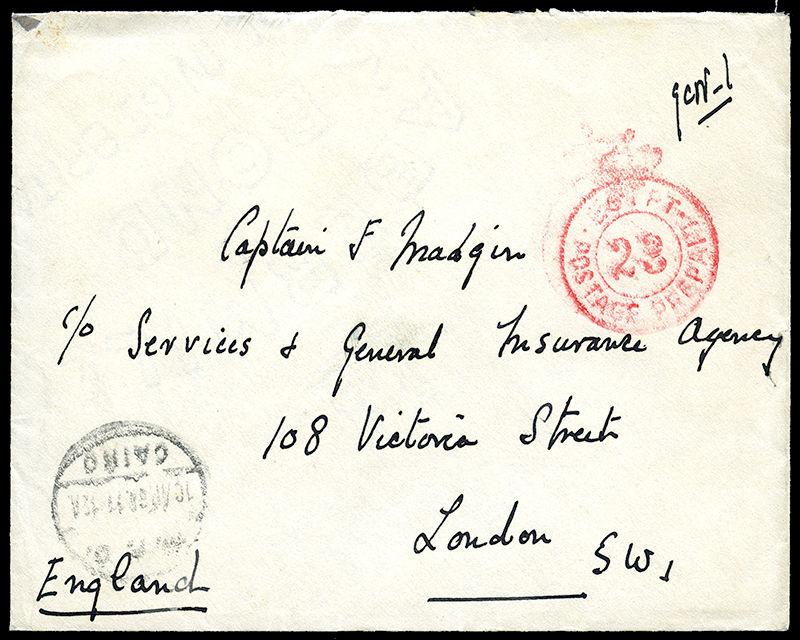 Captain F Madgin
c/o Services & General Insurance Agency
108 Victoria Street
London SW1
England
EGYPT POSTAGE PREPAID
23
CAIRO